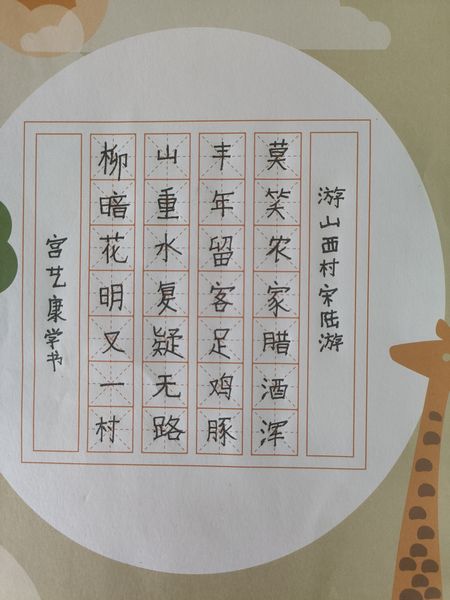 游山西村宋陆游
莫笑农家腊酒浑
丰年留客足鸡豚
山重水复疑无路
柳暗花明又一村
宫艺康学书